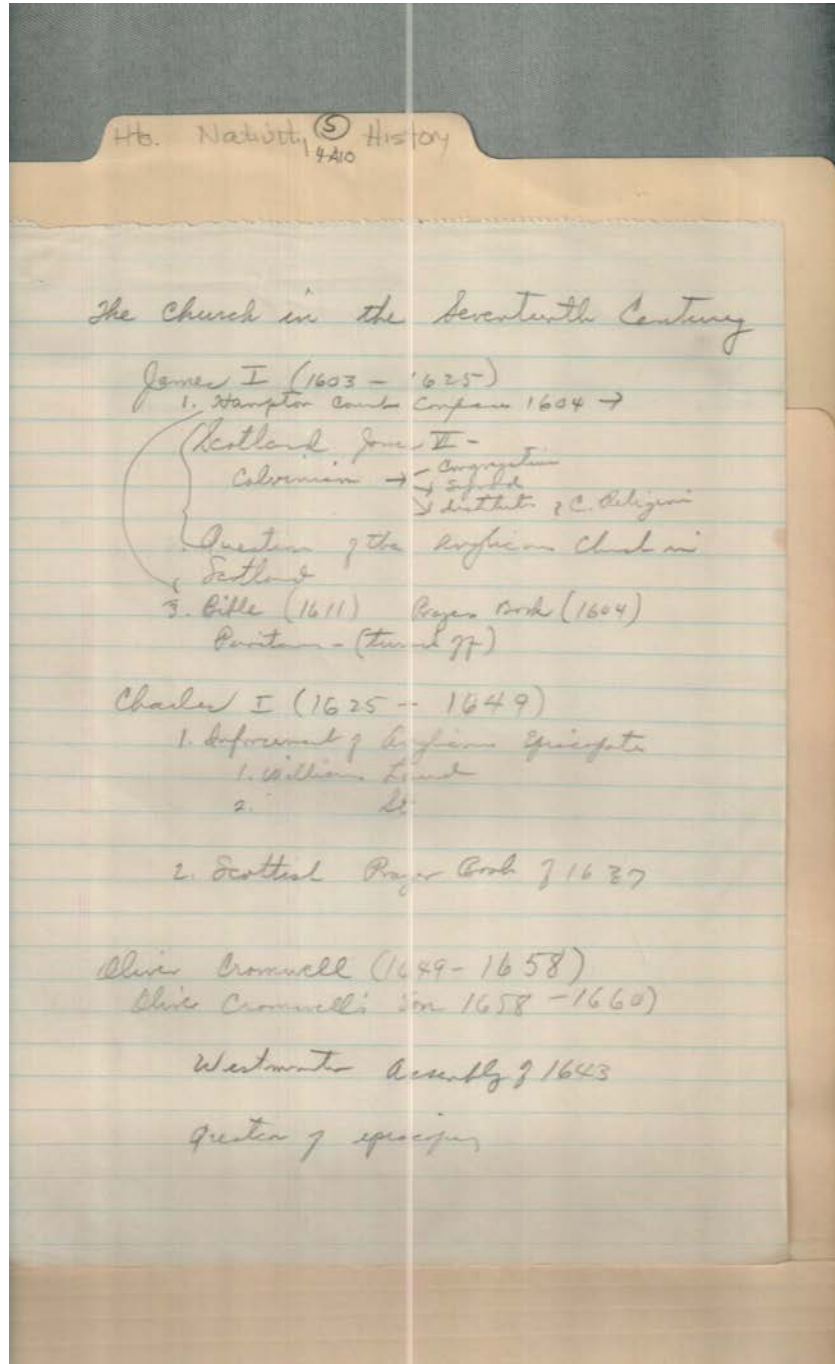 Hb. Nativity History
S
4-A10
The Church in the Seventeenth Century
James I (1603 - 1625)
1. Hampton Court 1604 →
Scotland James VI -
Calvinism → - Congregation
→ Synod
→ Institutes of C. Religion
Question of the Anglican Church in
Scotland
3. Bible (1611) Prayer Book (1604)
Puritans - (turned off)
Charles I (1625 -- 1649)
1. Enforcement of Anglican Episcopate
1. William Laud
2.
2. Scottish Prayer Book of 1637
Oliver Cromwell (1649 - 1658)
Oliver Cromwell's son 1658 - 1660)
Westminster Assembly of 1643
Question of episcopacy